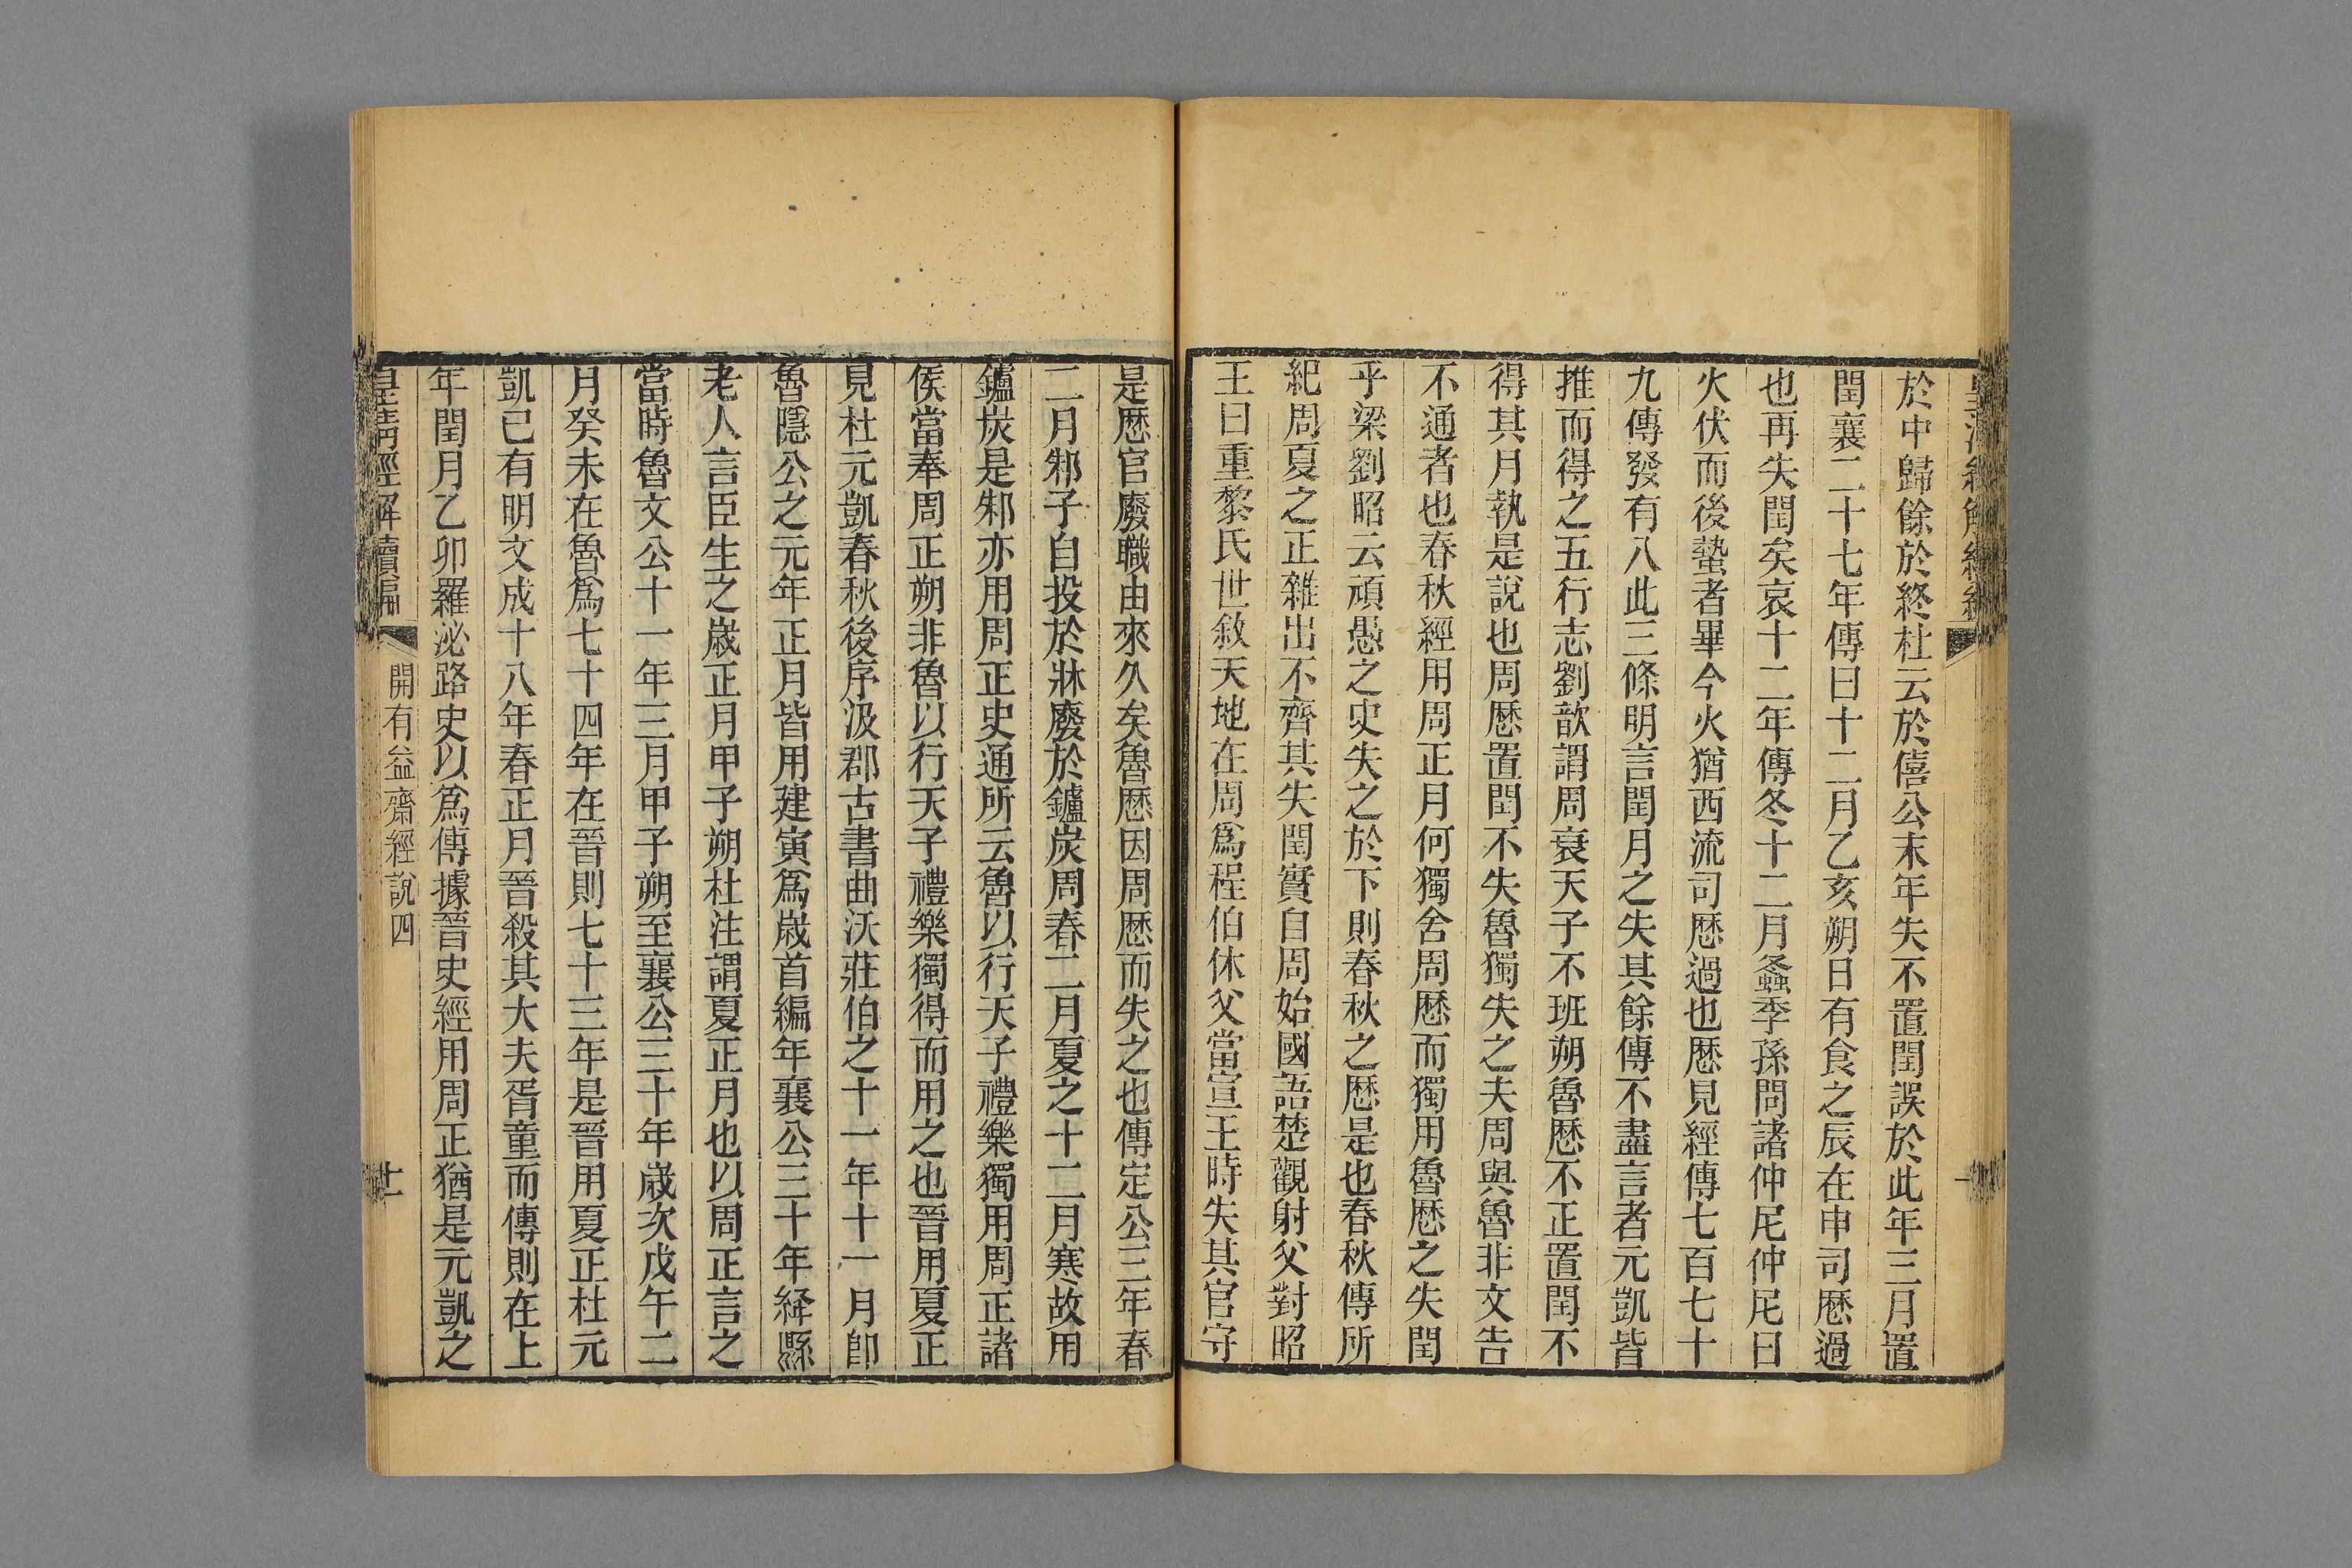 於中歸餘於終杜云於僖公末年失不置閏誤於此年三月置
閏襄二十七年傳曰十二月乙亥朔日有食之辰在申司厯過
也再失閏矣哀十二年傳冬十二月螽季孫問諸仲尼仲尼曰
火伏而後蟄者畢今火猶西流司厯過也厯見經傳七百七十
九傳發有八此三條明言閏月之失其餘傳不盡言者元凱皆
推而得之五行志劉歆謂周衰天子不班朔魯厯不正置閏不
得其月執是說也周厯置閏不失魯獨失之夫周與魯非文告
不通者也春秋經用周正月何獨舍周厯而獨用魯厯之失閏
乎梁劉昭云頑愚之史失之於下則春秋之厯是也春秋傳所
紀周夏之正雜出不齊其失閏實自周始國語楚觀射父對昭
王曰重黎氏世敘天地在周爲程伯休父當宣王時失其官守
是厯官廢職由來久矣魯厯因周厯而失之也傳定公三年春
二月邾子自投於牀廢於鑪炭周春二月夏之十二月寒故用
鑪炭是邾亦用周正史通所云魯以行天子禮樂獨用周正諸
侯當奉周正朔非魯以行天子禮樂獨得而用之也晉用夏正
見杜元凱春秋後序汲郡古書曲沃莊伯之十一年十一月卽
魯隱公之元年正月皆用建寅爲歲首編年襄公三十年絳縣
老人言臣生之歲正月甲子朔杜注謂夏正月也以周正言之
當時魯文公十一年三月甲子朔至襄公三十年歲次戊午二
月癸未在魯爲七十四年在晉則七十三年是晉用夏正杜元
凱已有明文成十八年春正月晉殺其大夫胥童而傳則在上
年閏月乙卯羅泌路史以爲傳據晉史經用周正猶是元凱之
皇清經解續編
開有益齋經說四